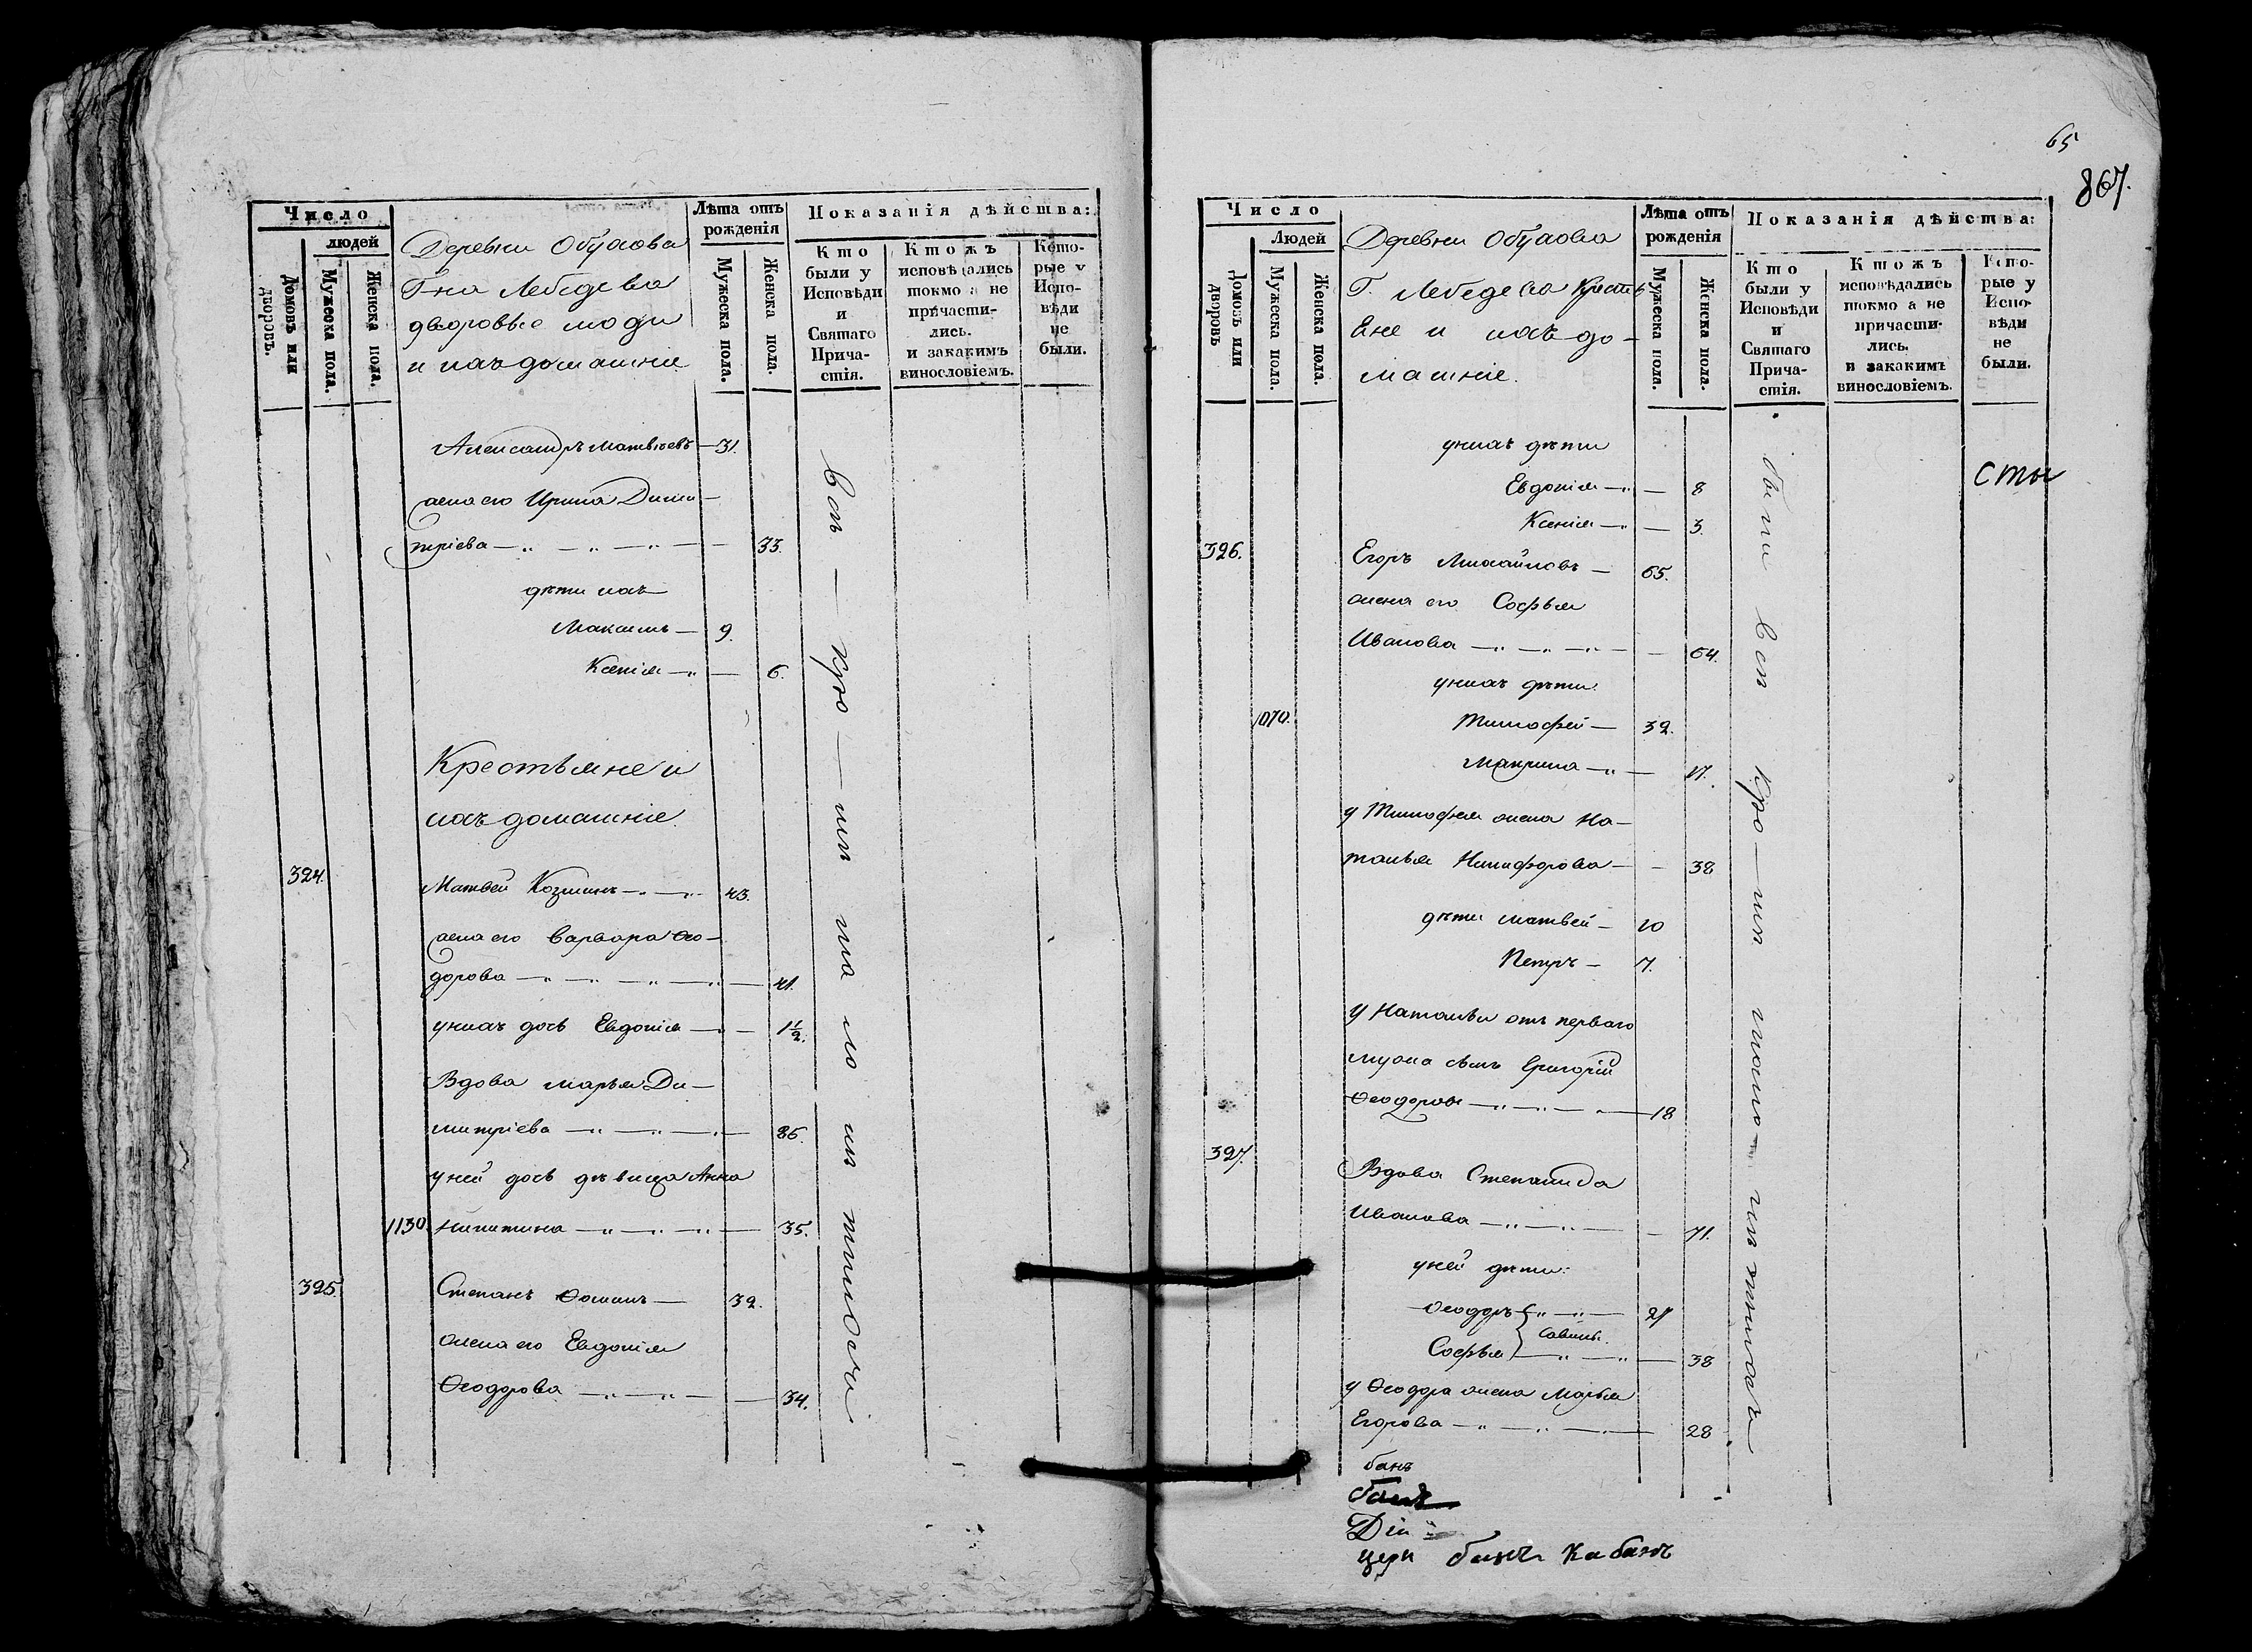 Число
людей
Домовъ или дворовъ.
Мужеска пола.
Женска пола.
Деревни Обухова
Г-на Лебедева
дворовые люди
и ихъ домашніе
Лѣта отъ рожденія
Мужеска пола.
Женска пола.
Показанія дѣйства:
Кто были у Исповѣди и Святаго Причастія.
Ктожъ исповѣдались токмо а не причастились. и закакимъ винословіемъ.
Которые у Исповѣди не были.
Александръ Матвѣевъ — 31.
жена его Ирина Дими-
тріева — 33.
дѣти ихъ
Максимъ — 9.
Ксенія — 6.
Крестьяне и
ихъ домашніе.
324. Матвей Козминъ — 43.
жена его Варвара Ѳео-
дорова — 41.
у нихъ дочь Евдокія — 1½.
Вдова Марья Ди-
митріева — 86.
у ней дочь дѣвица Анна
1130. Никитина — 35.
325. Степанъ Ѳоминъ — 32.
жена его Евдокія
Ѳеодорова — 34.
65
867.
Число
Людей
Домовъ или дворовъ
Мужеска пола.
Женска пола.
Деревни Обухова
Г. Лебедева Кресть-
яне и ихъ до-
машніе.
Лѣта отъ рожденія
Мужеска пола.
Женска пола.
Показанія дѣйства:
Кто были у Исповѣди и Святаго Причастія.
Ктожъ исповѣдались токмо а не причастились. и закакимъ винословіемъ.
Которые у Исповѣди не были.
у нихъ дѣти
Евдокія — 8
Ксенія — 3.
сты
326. Егоръ Михайловъ — 65.
жена его Софья
Иванова — 64.
у нихъ дѣти.
1070. Тимофей — 39.
Макрина — 17.
у Тимофея жена На-
талья Никифорова — 38
дѣти Матвей — 10
Петръ — 7.
у Натальи отъ перваго
мужа сынъ Григорій
Ѳеодоровъ — 18
327. Вдова Степанида
Иванова — 71.
у ней дѣти:
Ѳеодоръ — 27
Савины.
Софья — 38
у Ѳеодора жена Марья
Егорова — 28
банъ
церк банъ Кабанъ